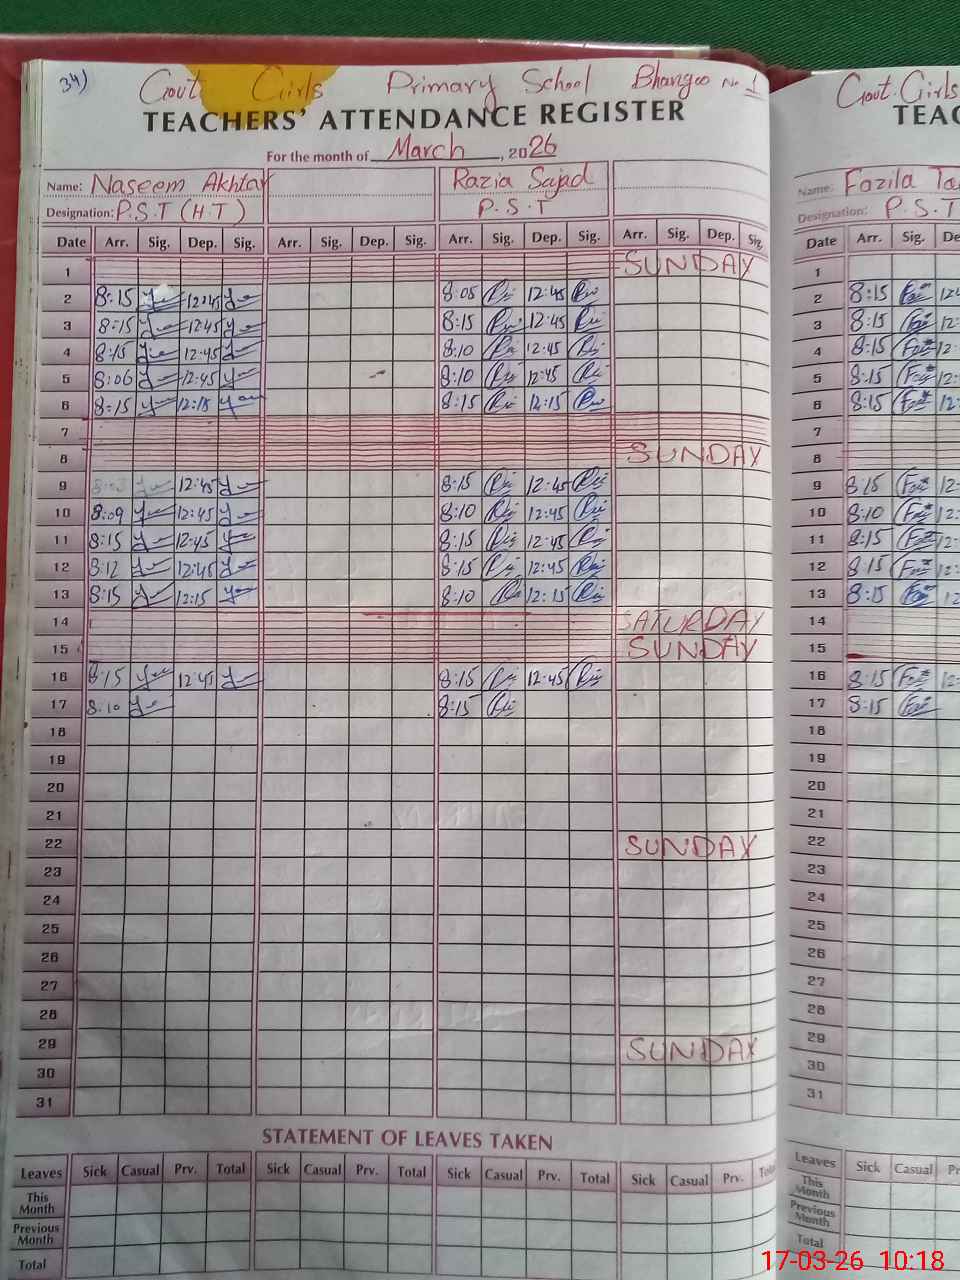 34)
Govt Girls Primary School Bhangoo No 1
TEACHERS' ATTENDANCE REGISTER
For the month of March, 2026
Name: Naseem Akhtar Razia Sajad
Designation: P.S.T (H.T) P.S.T
Date Arr. Sig. Dep. Sig. Arr. Sig. Dep. Sig. Arr. Sig. Dep. Sig. Arr. Sig. Dep. Sig.
1 SUNDAY
2 8:15 12:45 8:05 12:45
3 8:15 12:45 8:15 12:45
4 8:15 12:45 8:10 12:45
5 8:06 12:45 8:10 12:45
6 8:15 12:18 8:15 12:15
7
8 SUNDAY
9 12:45 8:15 12:45
10 8:09 12:45 8:10 12:45
11 8:15 12:45 8:15 12:45
12 8:12 12:45 8:15 12:45
13 8:15 12:15 8:10 12:15
14 SATURDAY
15 SUNDAY
16 8:15 12:45 8:15 12:45
17 8:10 8:15
18
19
20
21
22 SUNDAY
23
24
25
26
27
28
29 SUNDAY
30
31
STATEMENT OF LEAVES TAKEN
Leaves Sick Casual Prv. Total Sick Casual Prv. Total Sick Casual Prv. Total Sick Casual Prv. Total
This Month
Previous Month
Total
Govt. Girls
Name: Fozila
Designation: P.S.T
Date Arr. Sig.
1
2 8:15
3 8:15 12:
4 8:15 12:
5 8:15 12:
6 8:15 12:
7
8
9 8:15 12:
10 8:10 12:
11 8:15 12:
12 8:15 12:
13 8:15 12
14
15
16 8:15 12:
17 8:15
18
19
20
21
22
23
24
25
26
27
28
29
30
31
Leaves Sick Casual
This Month
Previous Month
Total
17-03-26 10:18